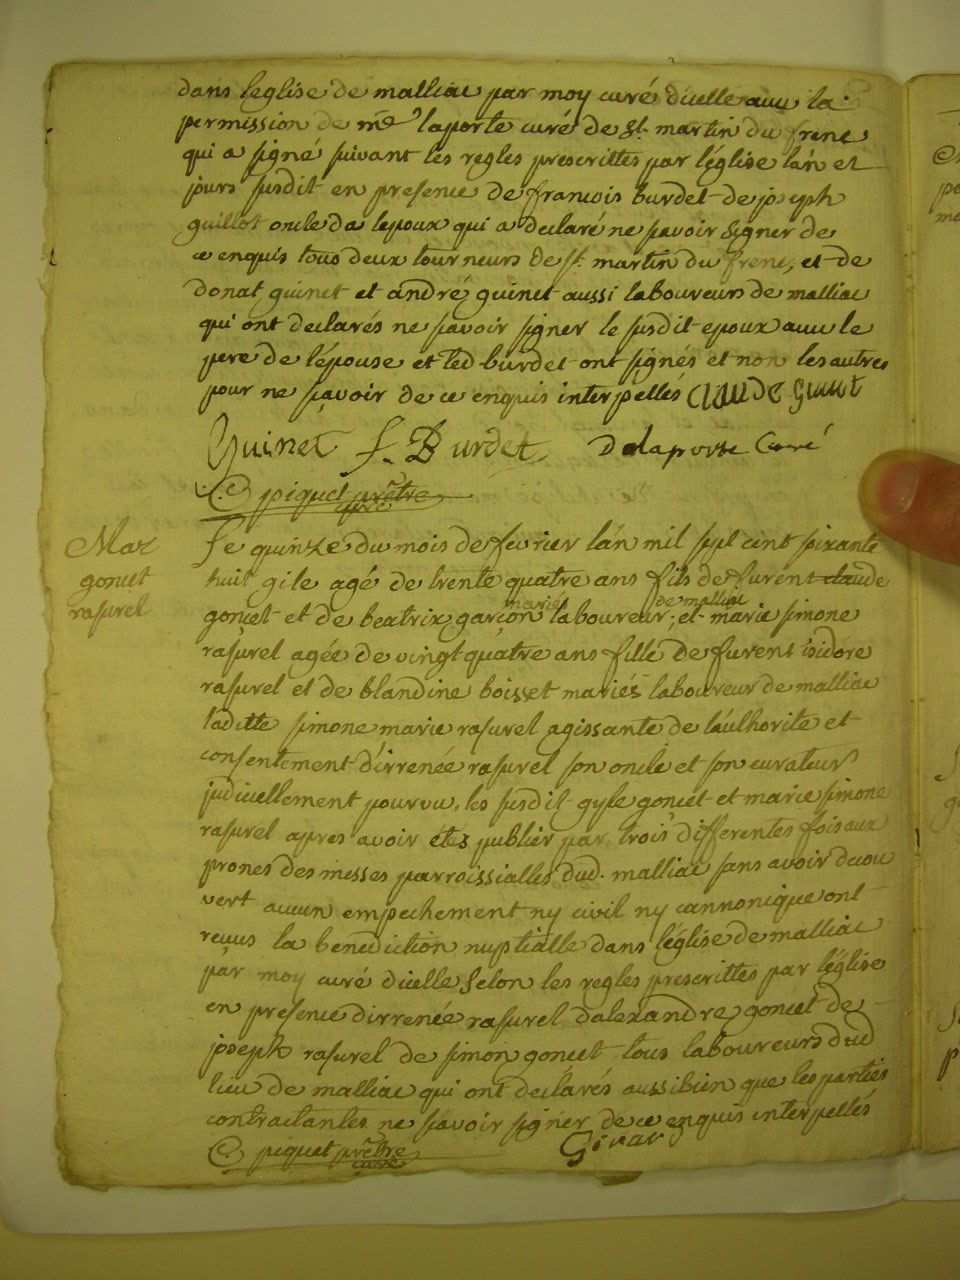 dans leglise de malliac par moy curé dicelle avec la
permission de mre laporte curé de st. martin du frene
qui a signé suivant les regles prescrittes par l'église lán et
jours susdit en presence de francois burdet de joseph
guillot oncle de lepoux qui a declaré ne savoir signer de
ce enquis tous deux tourneurs de st. martin du frene, et de
donat guinet et andré guinet aussi laboureurs de malliac
qui ont declarés ne savoir signer le susdit epoux avec le
pere de l'épouse et led burdet ont signés et non les autres
pour ne sçavoir de ce enquis interpellés CLAUDE Guinet
Guinet f. Burdet Delaporte Curé
C piquet prêtre
curé
Mar
goncet
rasurel
Le quinze du mois de fevrier lán mil sept cent soixante
huit gile agé de trente quatre ans fils de furent claude
marié de malliac
goncet et de beatrix garcon laboureur, et marie simone
rasurel agée de vingt quatre ans fille de furent isidore
rasurel et de blandine boisset mariés laboureur de malliac
laditte simone marie rasurel agissante de láuthorite et
consentement d'irrenée rasurel son oncle et son curateur
judicuellement pourvu, les susdit gyle goncet et marie simone
rasurel apres avoir étés publier par trois differentes fois aux
prones des messes parroissialles dud. malliac sans avoir decou
vert aucun empechement ny civil ny cannonique ont
recus la benediction nuptialle dans l'église de malliac
par moy curé dicelle Selon les regles prescrittes par l'église
en presence dirrenée rasurel d'alexandre goncet de
joseph rasurel de simon goncet tous laboureurs dud
lieu de malliac qui ont declarés aussi bien que les parties
contractantes ne savoir signer de ce enquis interpellés
C piquet prêtre
curé